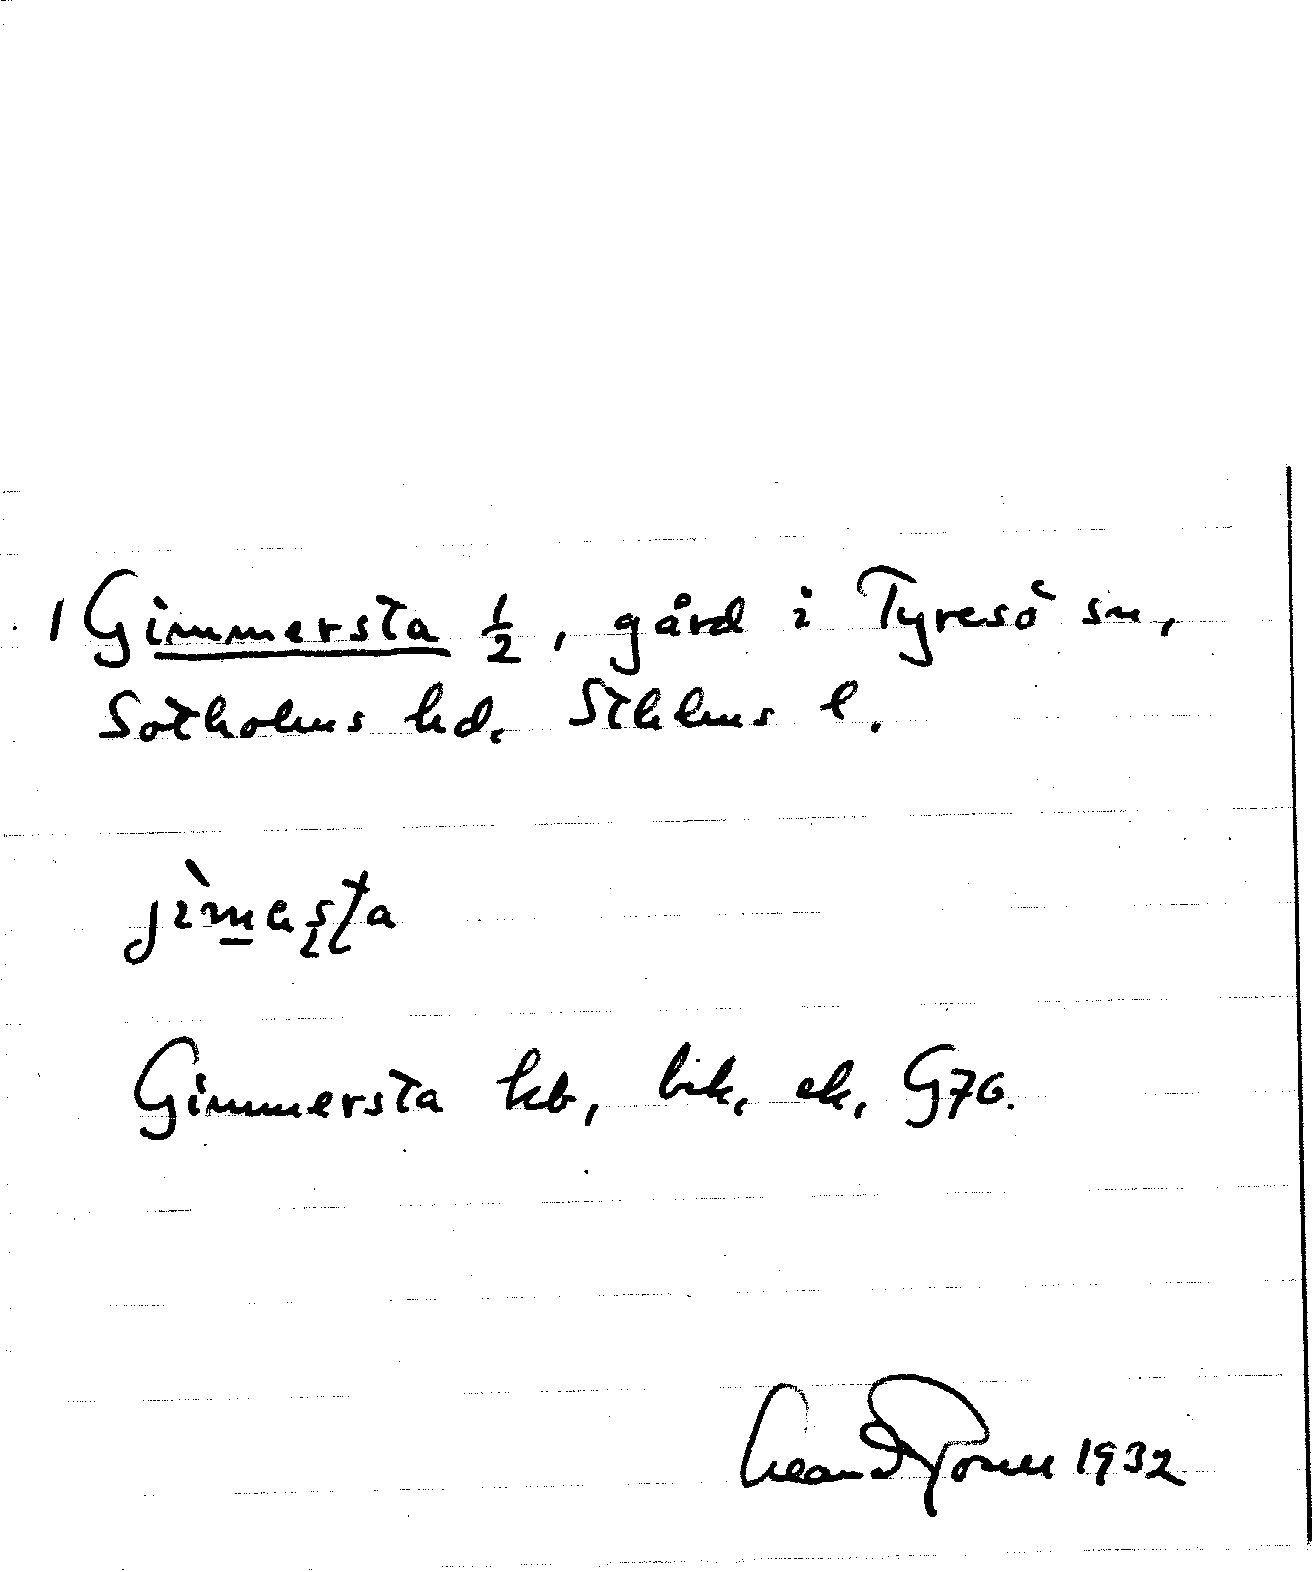 1 Gimmersta ½, gård i Tyresö sn,
Sotholms hd. Sthlms l.
jìm̲as̨ta
Gimmersta kb, bik, ek, G76.
1932